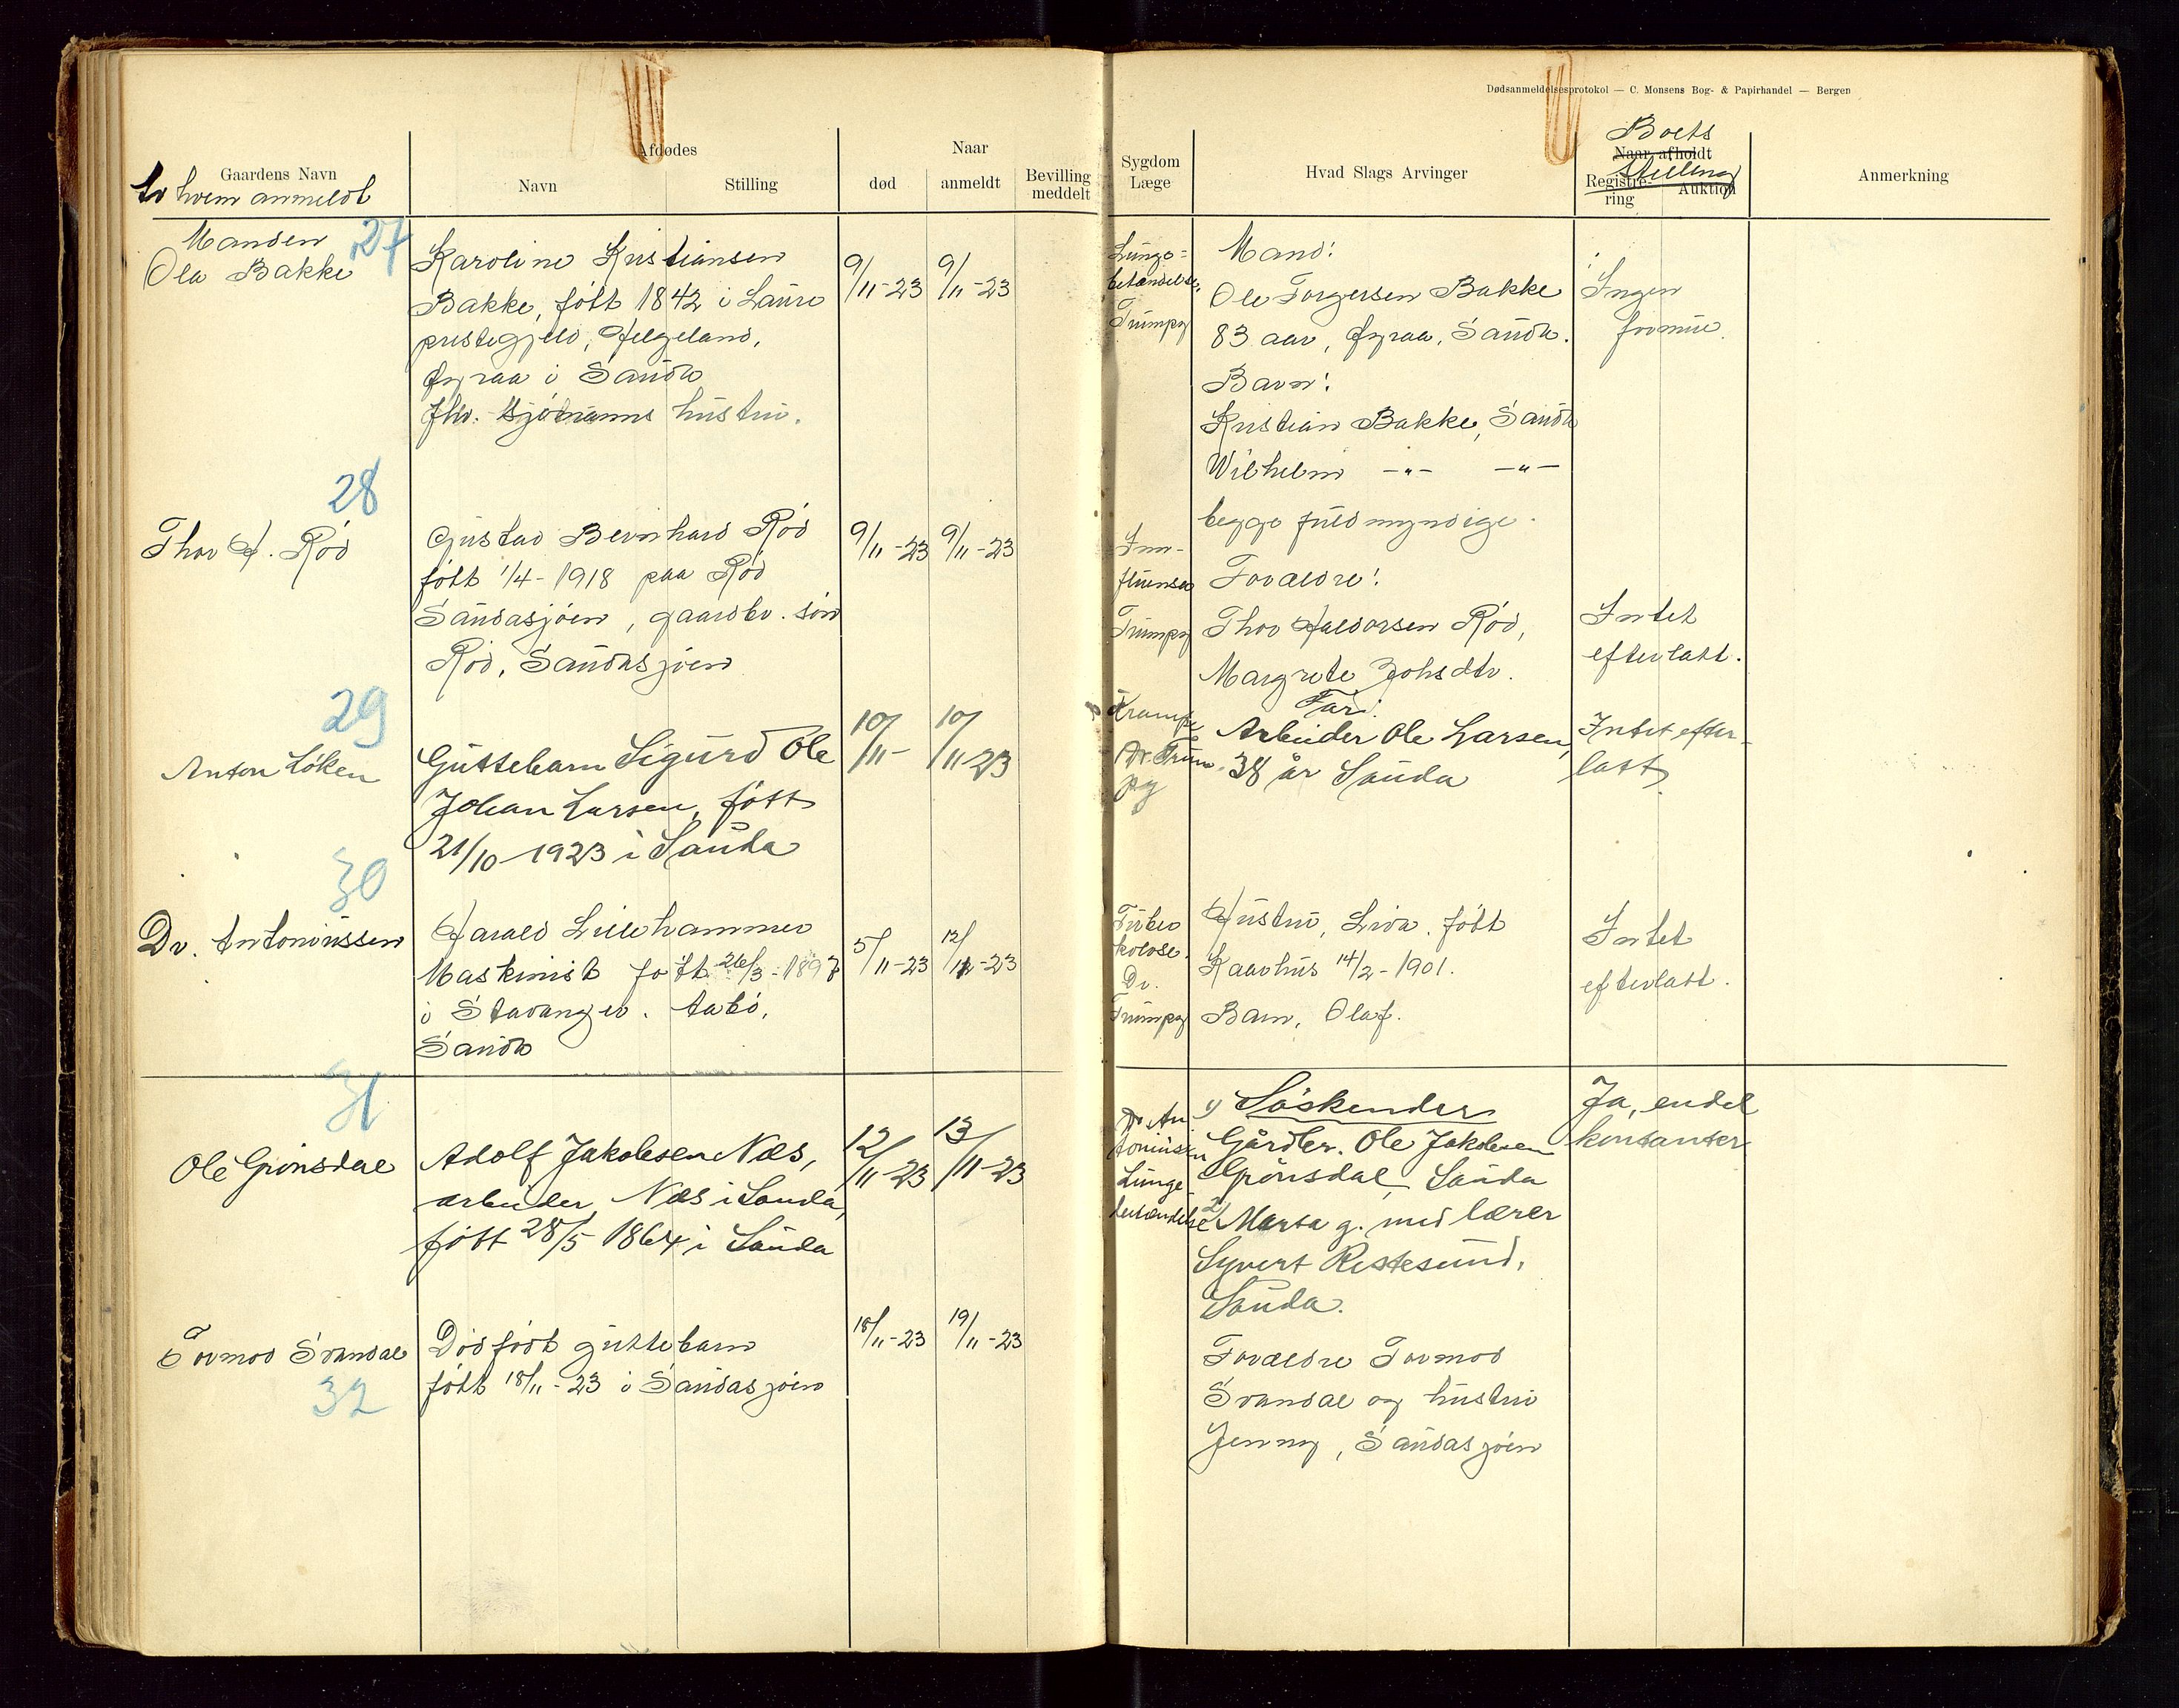 Dødsanmeldelsesprotokol — C. Monsens Bog- & Papirhandel — Bergen
Gaardens Navn
Av hvem anmeldt
Afdødes
Navn
Stilling
Naar
død
anmeldt
Bevilling meddelt
Sygdom
Læge
Hvad Slags Arvinger
Boets
Naar afholdt
Stilling
Registrering
Auktion
Anmerkning
27
Manden
Ola Bakke
Karoline Kristiansen
Bakke, født 1842 i
prestegjeld, Helgeland,
Øyraa i Sauda
fhv. hustru.
9/11-23
9/11-23
Lunge-
betændelse,
Trumpy
Mand:
Ole Torgersen Bakke
83 aar, Øyraa, Sauda.
Barn:
Kristian Bakke, Sauda
Wilhelm —"— —"—
begge fuldmyndige.
Ingen
formue.
28
Thor H. Rød
Gustav Bernhard Rød
født 1/4-1918 paa Rød
Saudasjøen, gaardbr. søn
Rød, Saudasjøen
9/11-23
9/11-23
Inn-
fluensa
Trumpy
Forældre:
Thor Haldorsen Rød,
Margrete Johsdtr.
Intet
efterlatt.
29
Anton Løken
Guttebarn Sigurd Ole
Johan Larsen, født
21/10-1923 i Sauda
10/11-
10/11 23
Krampe
Dr. Trum-
py
Far:
Arbeider Ole Larsen,
38 år Sauda
Intet efter-
latt.
30
Dr. Antoniussen
Harald Lillehammer
Maskinist født 26/3-1897
i Stavanger. Aabø,
Sauda
5/11-23
12/11-23
Tuber
kolose.
Dr.
Trumpy
Hustru, Liva. født
Kaarhus 14/2-1901.
Barn, Olaf.
Intet
efterlatt.
31
Ole Grønsdal
Adolf Jakobsen Næs,
arbeider, Næs i Sauda,
født 28/5 1864 i Sauda
12/11-23
13/11-23
Dr. An
toniussen
Lunge
betændelse
1) Søskender
Gårdbr. Ole Jakobsen
Grønsdal, Sauda
2) Marta g. med lærer
Syvert Restesund,
Sauda.
Ja, endel
kontanter
Tormod Svandal
32
Dødfødt guttebarn
født 18/11-23 i Saudasjøen
18/11-23
19/11-23
Forældre Tormod
Svandal og hustru
Jenny, Saudasjøen